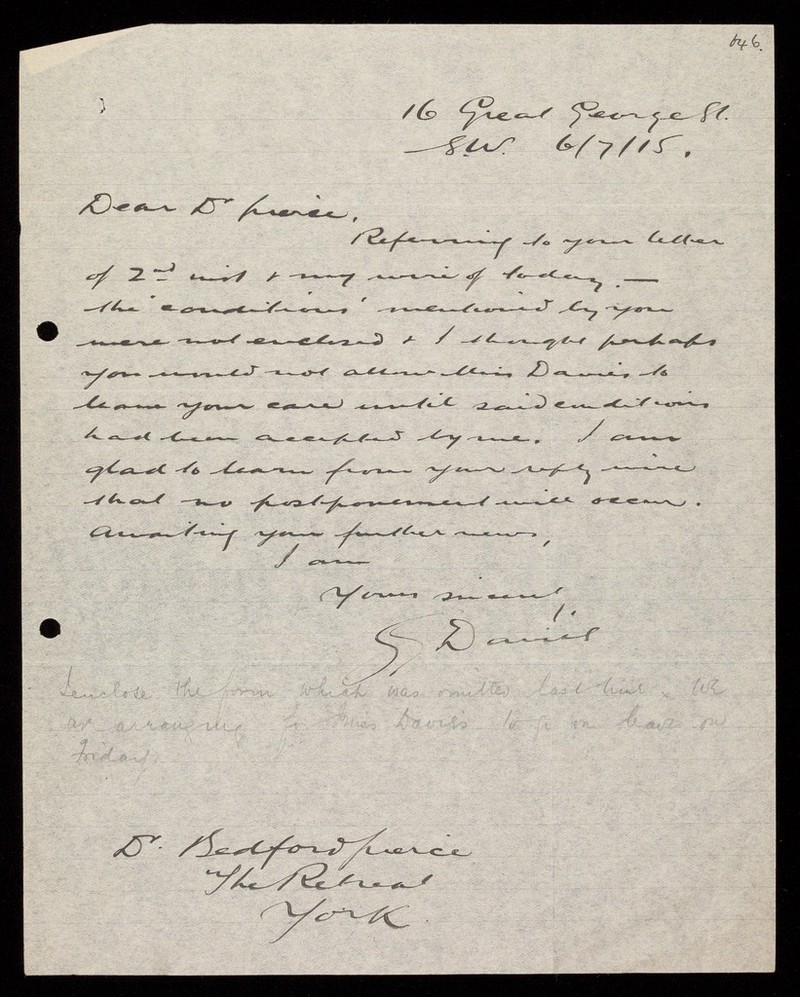 646.
16 Great George St.
S.W. 6/7/15.
Dear Dr Pierce,
Referring to your letter
of 2nd inst & my wire of today. —
the 'conditions' mentioned by you
were not enclosed & I thought perhaps
you would not allow Miss Davies to
leave your care until said conditions
had been accepted by me. I am
glad to learn from your reply wire
that no postponement will occur.
Awaiting your further news,
I am
Yours sincerely,
Davies
I enclose the form which was omitted last time & We
are arranging for Miss Davies to go on leave on
Friday.
Dr. Bedford Pierce
The Retreat
York.